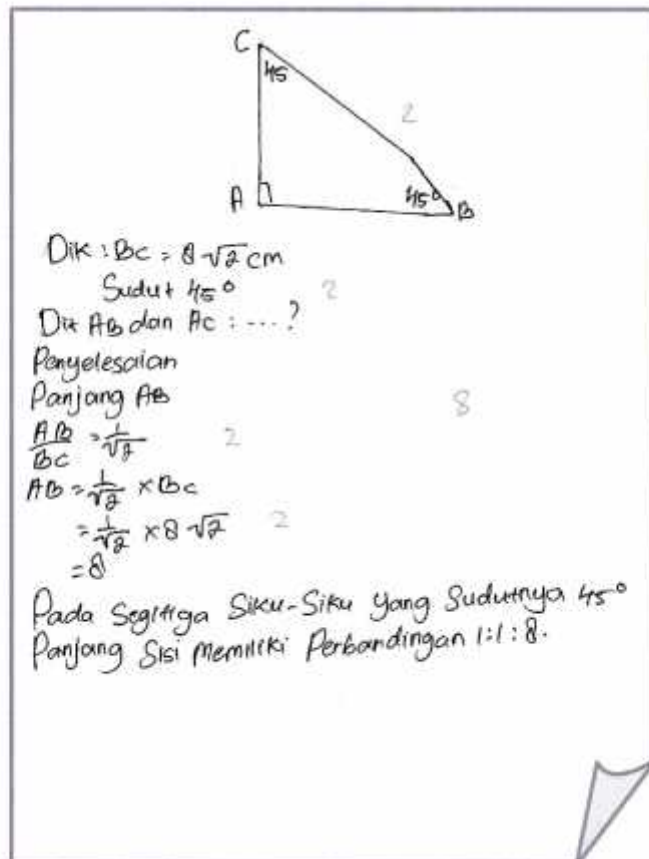 C
45
2
A
45°
B
Dik : BC = 8√2 cm
Sudut 45° 2
Dit AB dan AC : ....?
Penyelesaian
Panjang AB
8
AB/BC = 1/√2 2
AB = 1/√2 × BC
= 1/√2 × 8√2 2
= 8
Pada Segitiga Siku-Siku yang Sudutnya 45°
Panjang Sisi Memiliki Perbandingan 1:1:8.